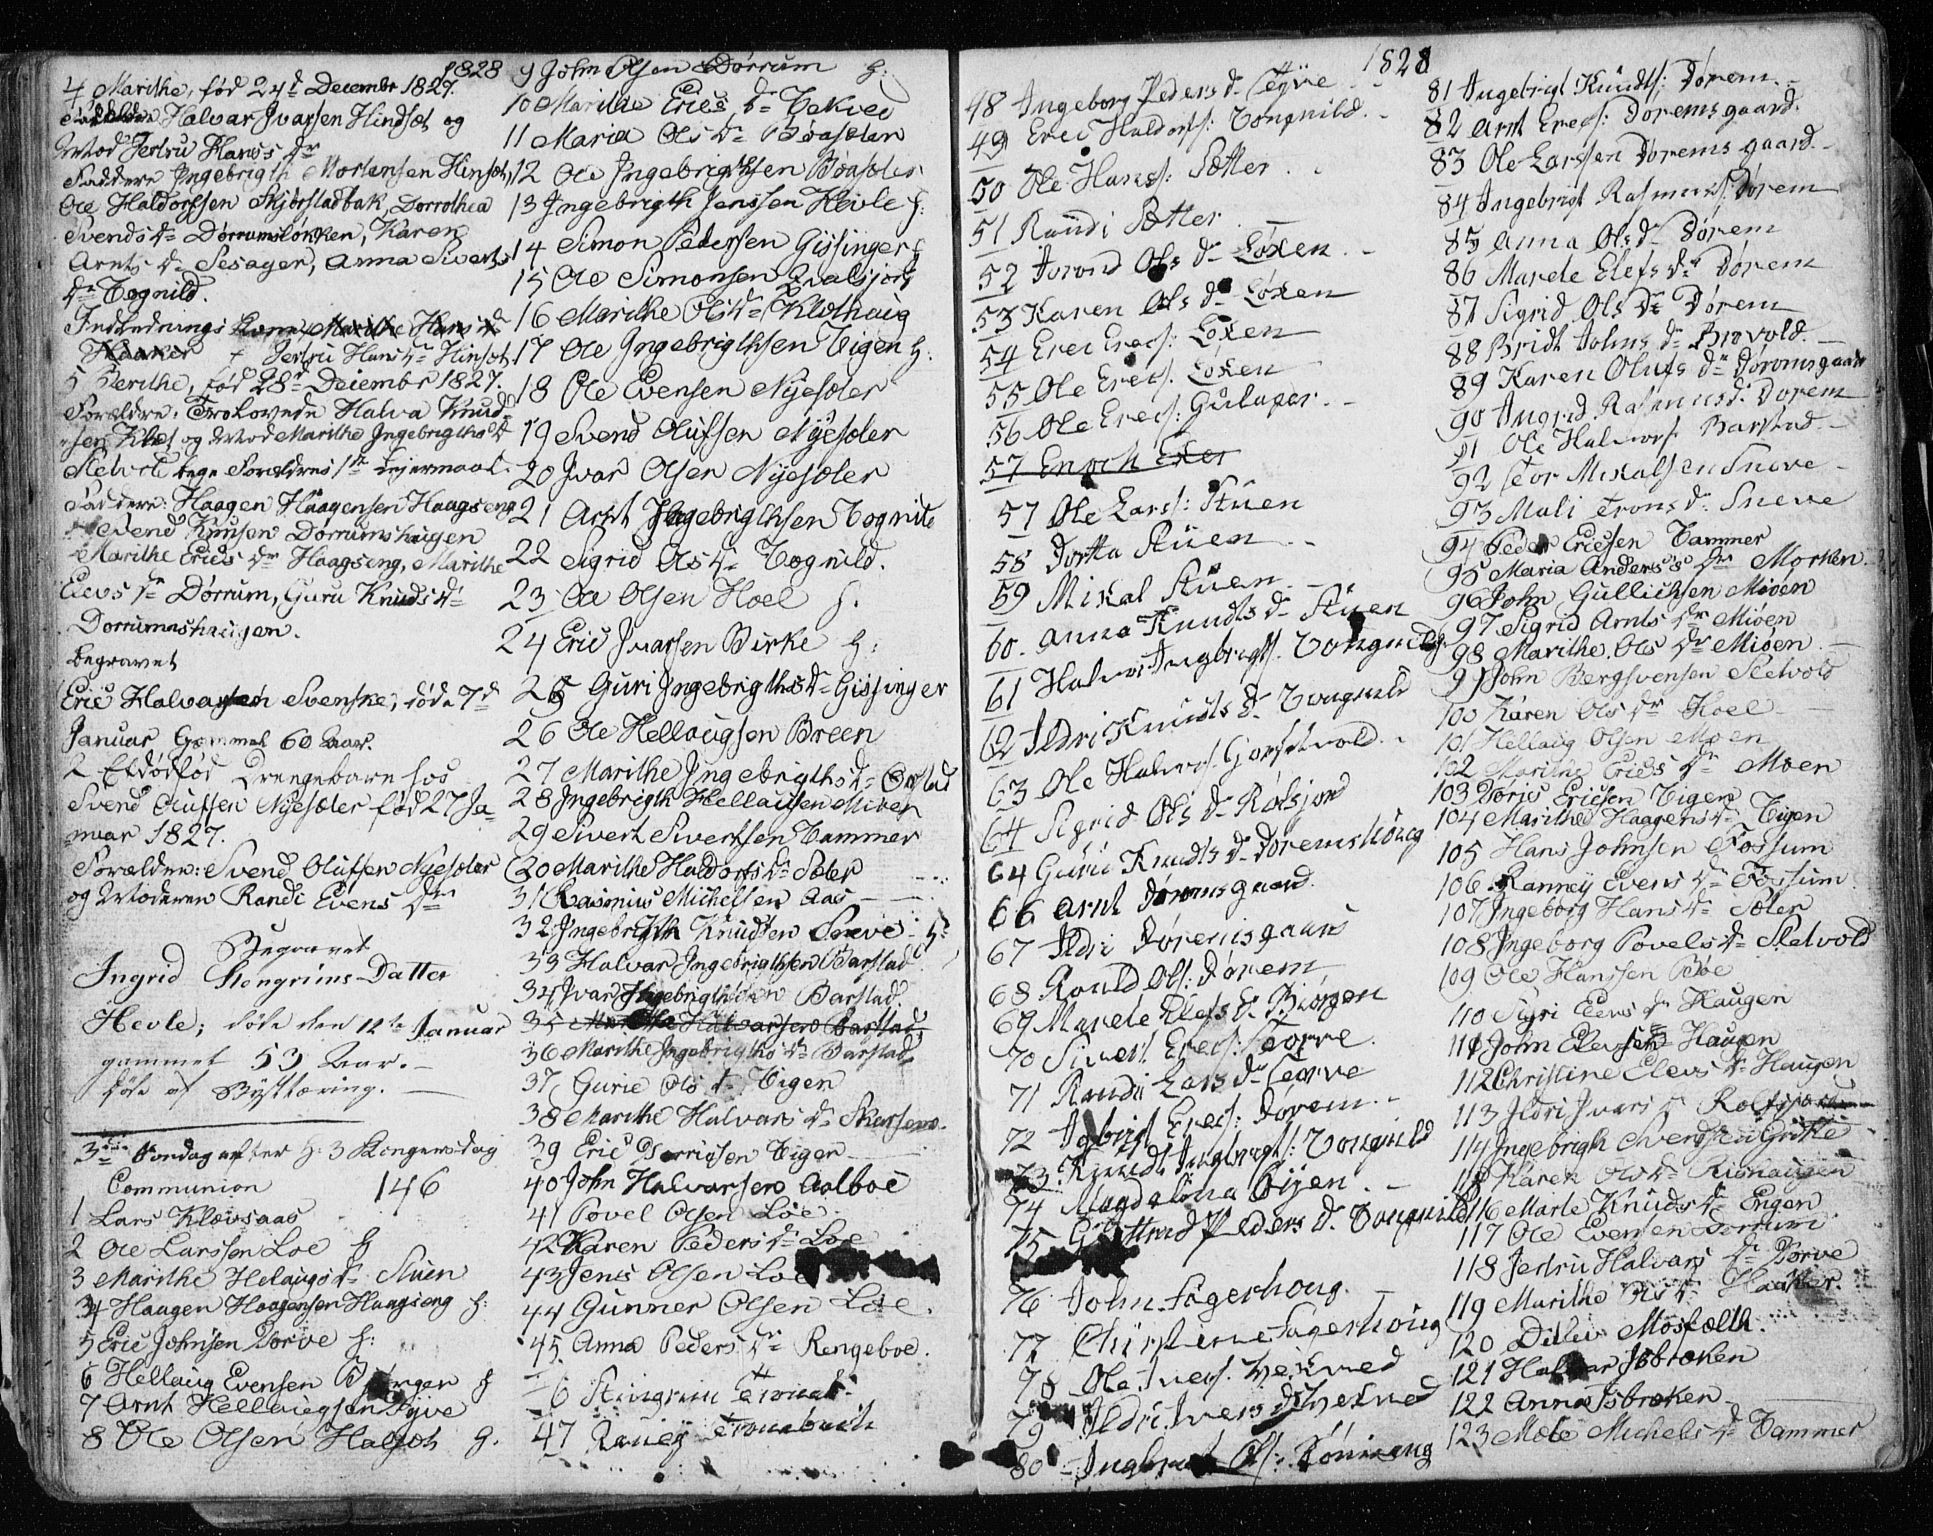 1828
4 Marithe, fød 24d Decembr 1827.
Halvar Ivarsen Hindset og
Mod Jertru Hans Dr
Faddere Ingebrigth Mortensen Hinset,
Ole Haldorssen Skjørstadbak, Dorrothea
Svends Dr Dørrumsløkken, Karen
Arnts Dr Sesager, Anna Siverts
Dr Tognild.
Indlednings Kone, Marithe Hans Dr
Haaker + Jertru Hans Dr Hinset,
5 Berithe, fød 28d Deicembr 1827.
Forældre: Trolovede Halva Knud
sen Klet og Mod Marithe Ingebrigths Dr
Sletvol bege Forældres 1te Lejermaal.
Faddere: Haagen Haagensen Haagseng
Svend Knusen Dørrumshaugen
Marithe Erics Dr Haagseng, Marithe
Elevs Dr Dørrum, Guru Knuds Dr
Dørrumshaugen.
begravet
Eric Halvarsen Svenske, døde 7d
Januar Gammel 60 Aar.
2 Et dødfød Drengebarn hos
Svend Olufsen Nyesæter fød 27 Ja-
nuar 1827.
Forældre: Svend Olufsen Nyesæter
og Moderen Randi Evens Dr
Begravet
Ingrid Stengrims-Datter
Hevle; døde den 12te Januar
gammel 53 Aar.
døde af Brÿsttæring.
3die Søndag efter H: 3 Kongersdag
Communion 146
1 Lars Klævsaas
2 Ole Larssen Loe H
3 Marithe Helaugs Dr Stuen
4 Haagen Haagensen Haagseng H:
5 Eric Johnsen Dørve H:
6 Hellaug Evensen Biørgen H
7 Arnt Hellaugsen Tyve
8 Ole Olsen Halset H.
9 John Olsen Dørrum H:
10 Marithe Erics Dr Vekvei
11 Maria Ols Dr Bøasæter
12 Ole Ingebrigthsen Bøasæter
13 Ingebrigth Jenssen Hevle H:
14 Simon Pedersen Gissinger H
15 Ole Simonsen Qvalsjord
16 Marithe Ols Dr Klethaug
17 Ole Ingebrigthsen Vigen H:
18 Ole Evensen Nyesæter
19 Svend Olufsen Nyesæter
20 Ivar Olsen Nyesæter
21 Arnt Ingebrigthsen Tognild
22 Sigrid Ols Dr Tognild.
23 Ole Olsen Hoel H.
24 Eric Ivarsen Birke H:
25 Guri Ingebrigths Dr Gissinger
26 Ole Hellaugsen Breen
27 Marithe Ingebrigths Dr
28 Ingebrigth Hellausen Miøen
29 Sivert Sivertsen Tammer
20 Marithe Haldors Dr Sæter
31 Rasmus Michelsen Aas
32 Ingebrigth Knudsen Sneve H:
33 Halvar Ingebrigthsen Barstad
34 Ivar Ingebrigthsen Barstad.
35 Halvarsen Barstad
36 Marithe Ingebrigths Dr Barstad
37 Gurie Ols Dr Vigen
38 Marithe Halvars Dr
39 Eric Vigen
40 John Halvarsen Aalboe
41 Povel Olsen Loe
42 Karen Peders Dr Loe
43 Jens Olsen Loe
44 Gunner Olsen Loe.
45 Anna Peders Dr Rengeboe.
46 Stengrim
47 Raneÿ
1828
48 Ingeborg Peders Dr
49 Erec Haldorss: Tongnild.
50 Ole Hanss: Sætter
51 Randi Sætter
52 Jorond Ols Dr Løxen
53 Karen Ols Dr Løxen
54 Erec Erecs: Løxen
55 Ole Erecs. Løxen
56 Ole Erecs: Gulager.
57 Enoch Exer
57 Ole Larss: Stuen
58 Dortta Stuen
59 Mikal Stuen
60. Anna Knudts Dr Stuen
61 Halvor Ingbrigts. Tongnild
62 Ildri Knudts D. Tongnild
63 Ole Halvors. Gorsetvold.
64 Sigrid Ols Dr Rotsjord
64 Guru Knudts Dr Doremshoug
66 Arnt Doremsgaard.
67 Ildri Døremsgaard
68 Ronild Ols: Dørem
69 Marete Elefs D. Biørgen
70 Sivert Erecs: Tørve.
71 Randi Lars Dr Tørve
72 Ingbrigt Erecs: Dørem
73 Knudt Ingbrigts: Tongnild
74 Magdalena Vigen.
75 Peders D. Tongnild
76 John Fagerhoug.
77 Christine Fagerhoug
78 Ole Ivers. Vekved
79 Ildri Ivers D. Vekved
80 Ols:
81 Ingebrigt Knudts: Dørem.
82 Arnt Erecs: Doremsgaard.
83 Ole Larssen Doremsgaard.
84 Ingebrigt Rasmuss: Dørem
85 Anna Ols Dr Dørem
86 Marete Elefs Dr Dørem
87 Sigrid Ols Dr Dørem
88 Bridt Johns Dr Brovold.
89 Karen Olufs Dr Døromsgaard
90 Ingrid Rasmus D. Dorem
91 Ole Halvors. Barstad.
92 Mikalsen Sneve
93 Mali Trons Dr Sneve
94 Peder Ericsen Tammer
95 Maria Anders's Dr Morken.
96 John Gullichsen Miøen
97 Sigrid Arnts Dr Miøen
98 Marithe. Ols Dr Miøen
99 John Bergsvensen Sletvold
100 Karen Ols Dr Hoel
101 Hellaug Olsen Moen
102 Marithe Erics Dr Moen
103 Ericsen Vigen
104 Marithe Haagens Dr Vigen
105 Hans Johnsen Fossum
106 Ranneÿ Evens Dr Fossum
107 Ingeborg Hans Dr Sæter
108 Ingeborg Povels Dr Sletvold
109 Ole Hanssen Bøe
110 Sigri Eevs Dr Haugen
111 John Elevsen Haugen
112 Christine Elevs Dr Haugen
113 Ildri Ivars Dr
114 Ingebrigth Svendsen
115 Karen Ols Dr Rishaugen
116 Marte Knuds Dr Engen
117 Ole Evensen Dørrum
118 Jertru Halvars Dr Dørve
119 Marithe Ols Dr Haaker.
120 Ditlev Mosfælth.
121 Halvar Isbræken
122 Anna Isbræken
123 Mæle Michels Dr Tammer